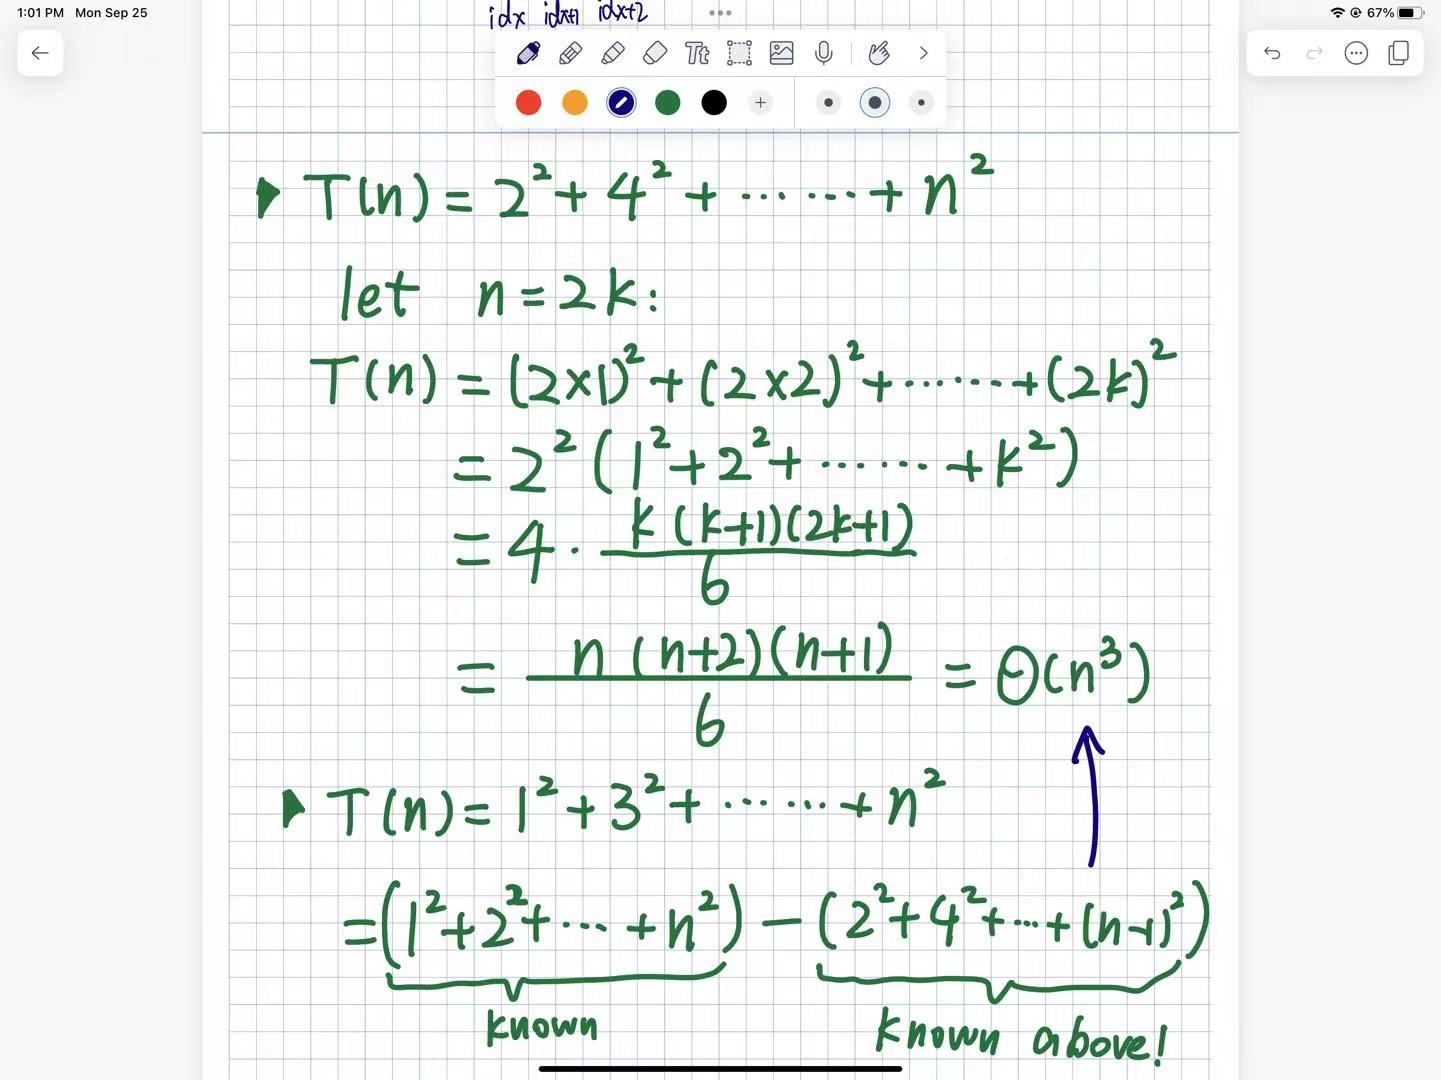 1:01 PM Mon Sep 25
67%
idx idx+1 idx+2
Tt
T(n) = 2² + 4² + ...... + n²
let n = 2k:
T(n) = (2×1)² + (2×2)² + ...... + (2k)²
= 2² (1² + 2² + ...... + k²)
= 4 · k(k+1)(2k+1) / 6
= n(n+2)(n+1) / 6 = Θ(n³)
T(n) = 1² + 3² + ...... + n²
= (1² + 2² + ... + n²) − (2² + 4² + ... + (n-1)²)
known known above!